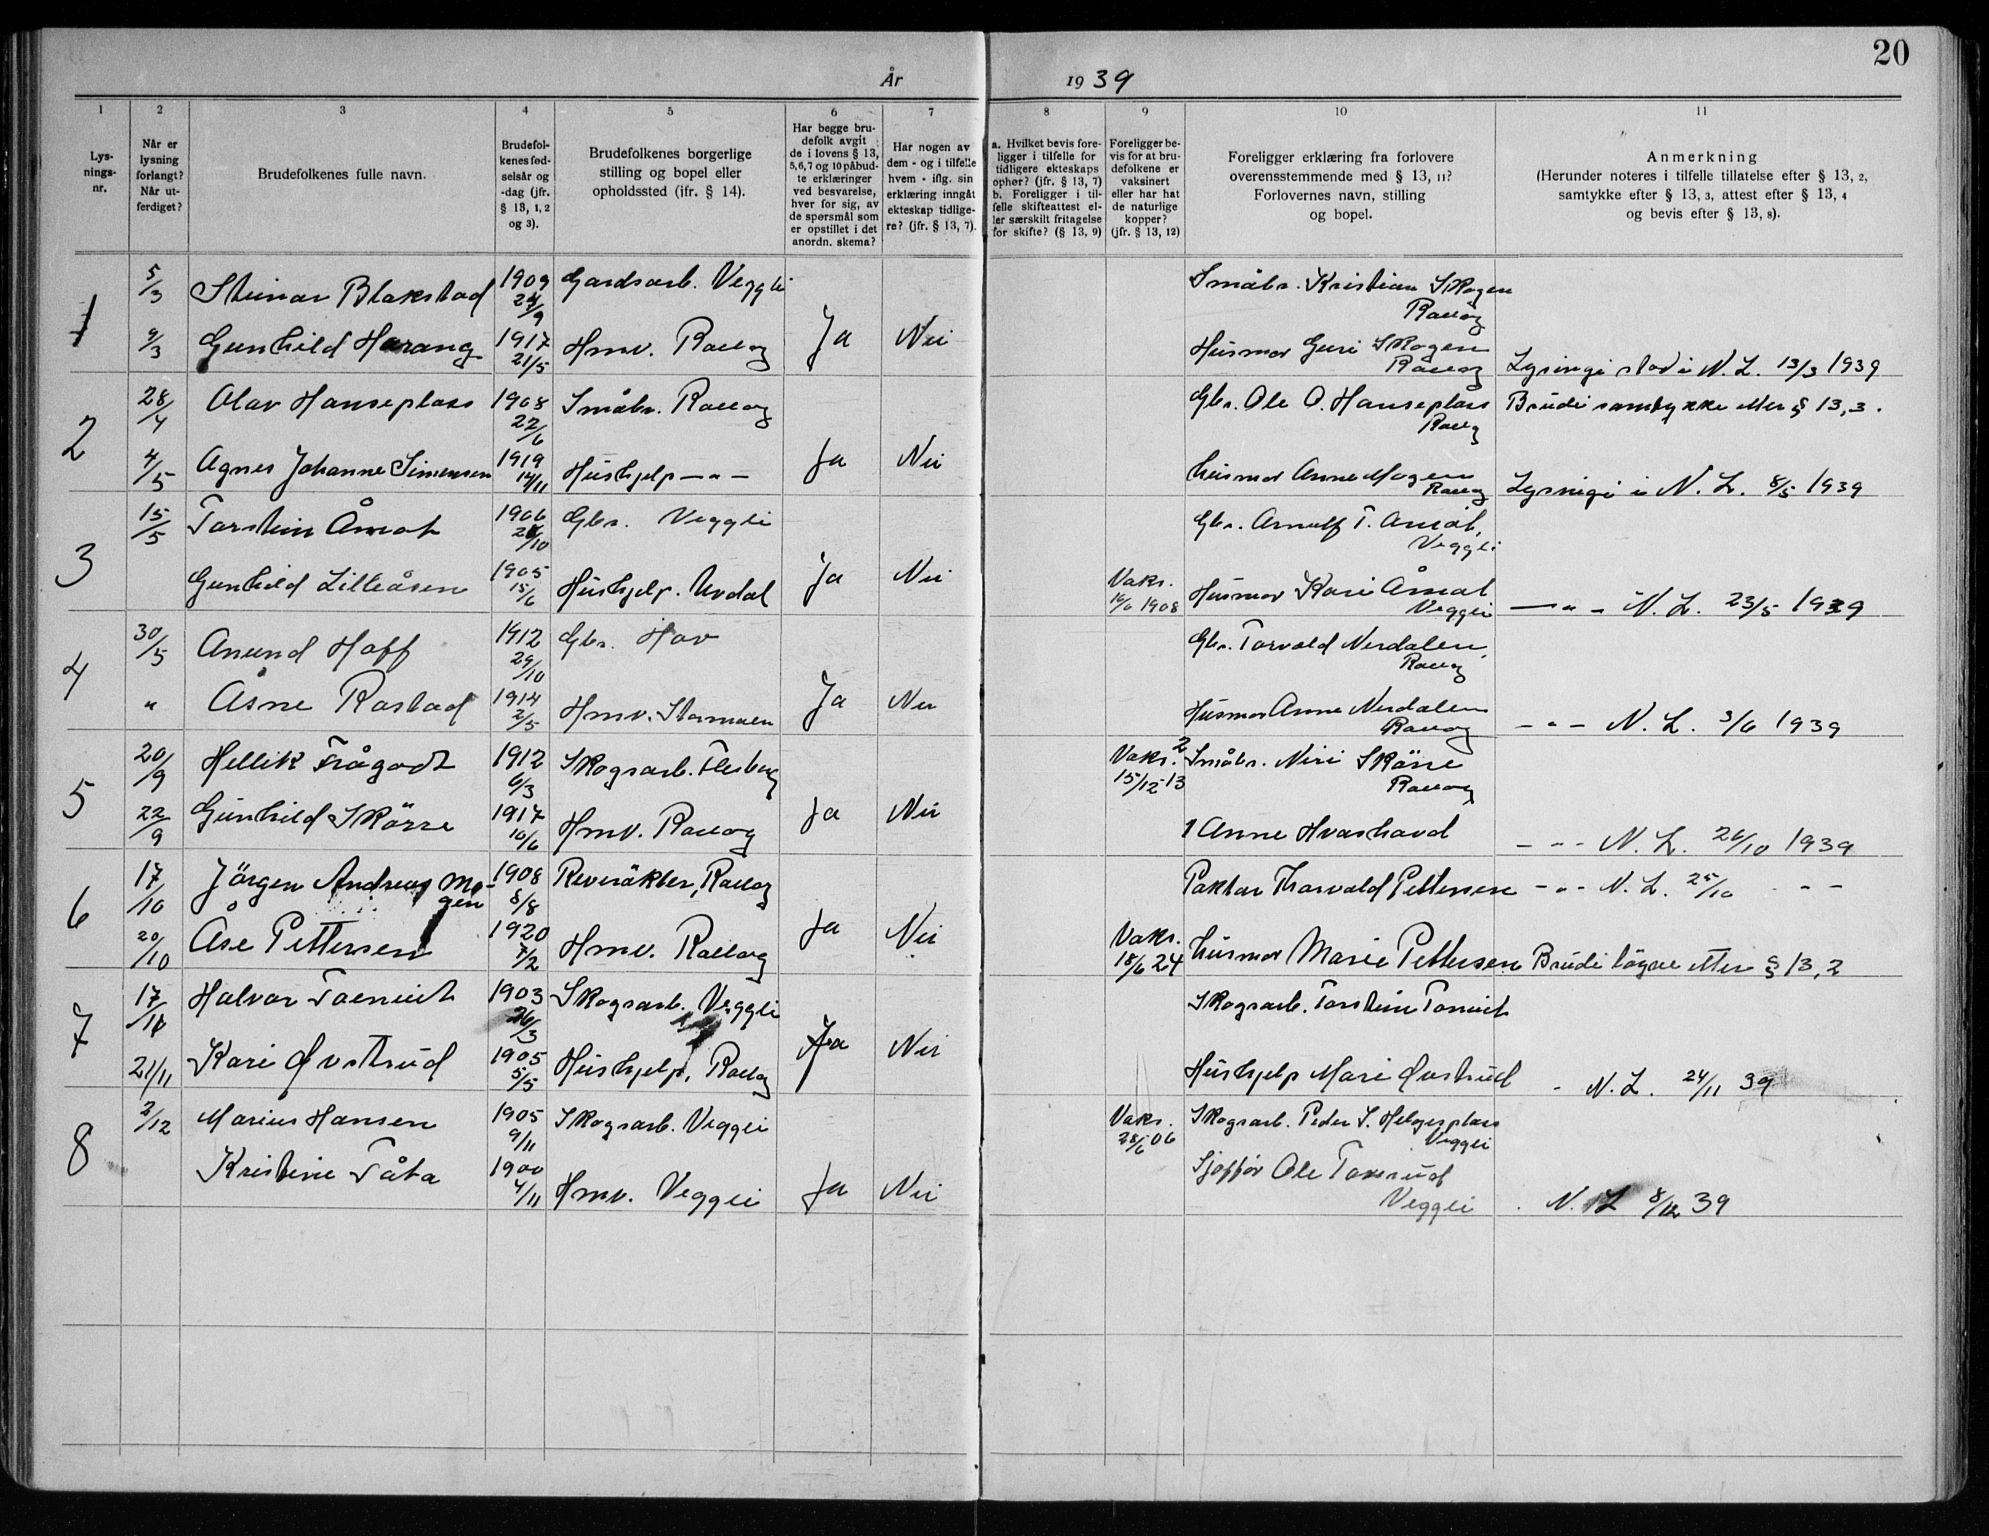 20
År 1939
1 2 3 4 5 6 7 8 9 10 11
Lys-
nings-
nr.
Når er
lysning
forlangt?
Når ut-
ferdiget?
Brudefolkenes fulle navn.
Brudefol-
kenes fød-
selsår og
-dag (jfr.
§ 13, 1, 2
og 3).
Brudefolkenes borgerlige
stilling og bopel eller
opholdssted (ifr. § 14).
Har begge bru-
defolk avgit
de i lovens § 13,
5,6,7 og 10 påbud-
te erklæringer
ved besvarelse,
hver for sig, av
de spørsmål som
er opstillet i det
anordn. skema?
Har nogen av
dem - og i tilfelle
hvem - iflg. sin
erklæring inngåt
ekteskap tidlige-
re? (jfr. § 13, 7).
a. Hvilket bevis fore-
ligger i tilfelle for
tidligere ekteskaps
ophør? (jfr. § 13, 7)
b. Foreligger i til-
felle skifteattest el-
ler særskilt fritagelse
for skifte? (§ 13, 9)
Foreligger be-
vis for at bru-
defolkene er
vaksinert
eller har hat
de naturlige
kopper?
(jfr. § 13, 12)
Foreligger erklæring fra forlovere
overensstemmende med § 13, 11?
Forlovernes navn, stilling
og bopel.
Anmerkning
(Herunder noteres i tilfelle tillatelse efter § 13, 2,
samtykke efter § 13, 3, attest efter § 13, 4
og bevis efter § 13, 8).
1 5/3 Steinar Blakstad 1909 24/9 Gardsarb. Veggli Småbr. Kristian Skogen
Rollag
9/3 Gunhild Harang 1917 21/5 Hmv. Rollag Ja Nei Husmor Guri Skogen
Rollag Lysingi stod i N. L. 13/3 1939
2 28/4 Olav Hanseplass 1908 22/6 Småbr. Rollag Gbr. Ole O. Hanseplass Brudi samtykke etter § 13,3.
Rollag
4/5 Agnes Johanne Simensen 1919 14/11 Hushjelp — " — Ja Nei Husmor Anne Mogen
Rollag Lysingi i N. L. 8/5 1939
3 15/5 Torstein Åmot 1906 /10 Gbr. Veggli Gbr. Arnulf T. Åmot,
Veggli
Gunhild Lilleåsen 1905 15/6 Hushjelp. Uvdal Ja Nei Vaks. 16/6 1908 Husmor Kari Åmot
Veggli — " — N. L. 23/5 1939
4 30/5 Anund Hoff 1912 29/10 Gbr. Hov Gbr. Torvald Nerdalen,
Rollag
" Åsne Rostad 1914 2/5 Hmv. Ja Nei Husmor Anne Nerdalen
Rollag — " — N. L. 3/6 1939
5 20/9 Hellik Trågodt 1912 6/3 Skogsarb. Flesberg Vaks. 2 15/12-13 Småbr. Niri Skörre
Rollag
22/9 Gunhild Skörre 1917 10/6 Hmv. Rollag Ja Nei 1 Anne Hvashovd — " — N. L. 26/10 1939
6 17/10 Jörgen Andreas Mo-
gen 1908 8/8 Reverökter, Rollag Poktor Thorvald Pettersen — " — N. L. 25/10 — " —
20/10 Åse Pettersen 1920 7/2 Hmv. Rollag Ja Nei Vaks. 18/6 24 Husmor Marie Pettersen Brudi löyve etter § 13,2
7 17/11 Halvor Toeneiet 1903 26/3 Skogsarb. Veggli Skogsarb. Torstein Toneiet
21/11 Kari Øvstrud 1905 5/5 Hushjelp, Rollag Ja Nei Hushjelp Mari Øvstrud " N. L. 24/11 39
8 2/12 Marius Hansen 1905 9/11 Skogsarb. Veggli Vaks. 28/6 06 Skogsarb. Peder S. Helgesplass
Veggli
Kristine Tåta 1900 4/11 Hmv. Veggli Ja Nei Sjofför Ole
Veggli N. L 8/12 39